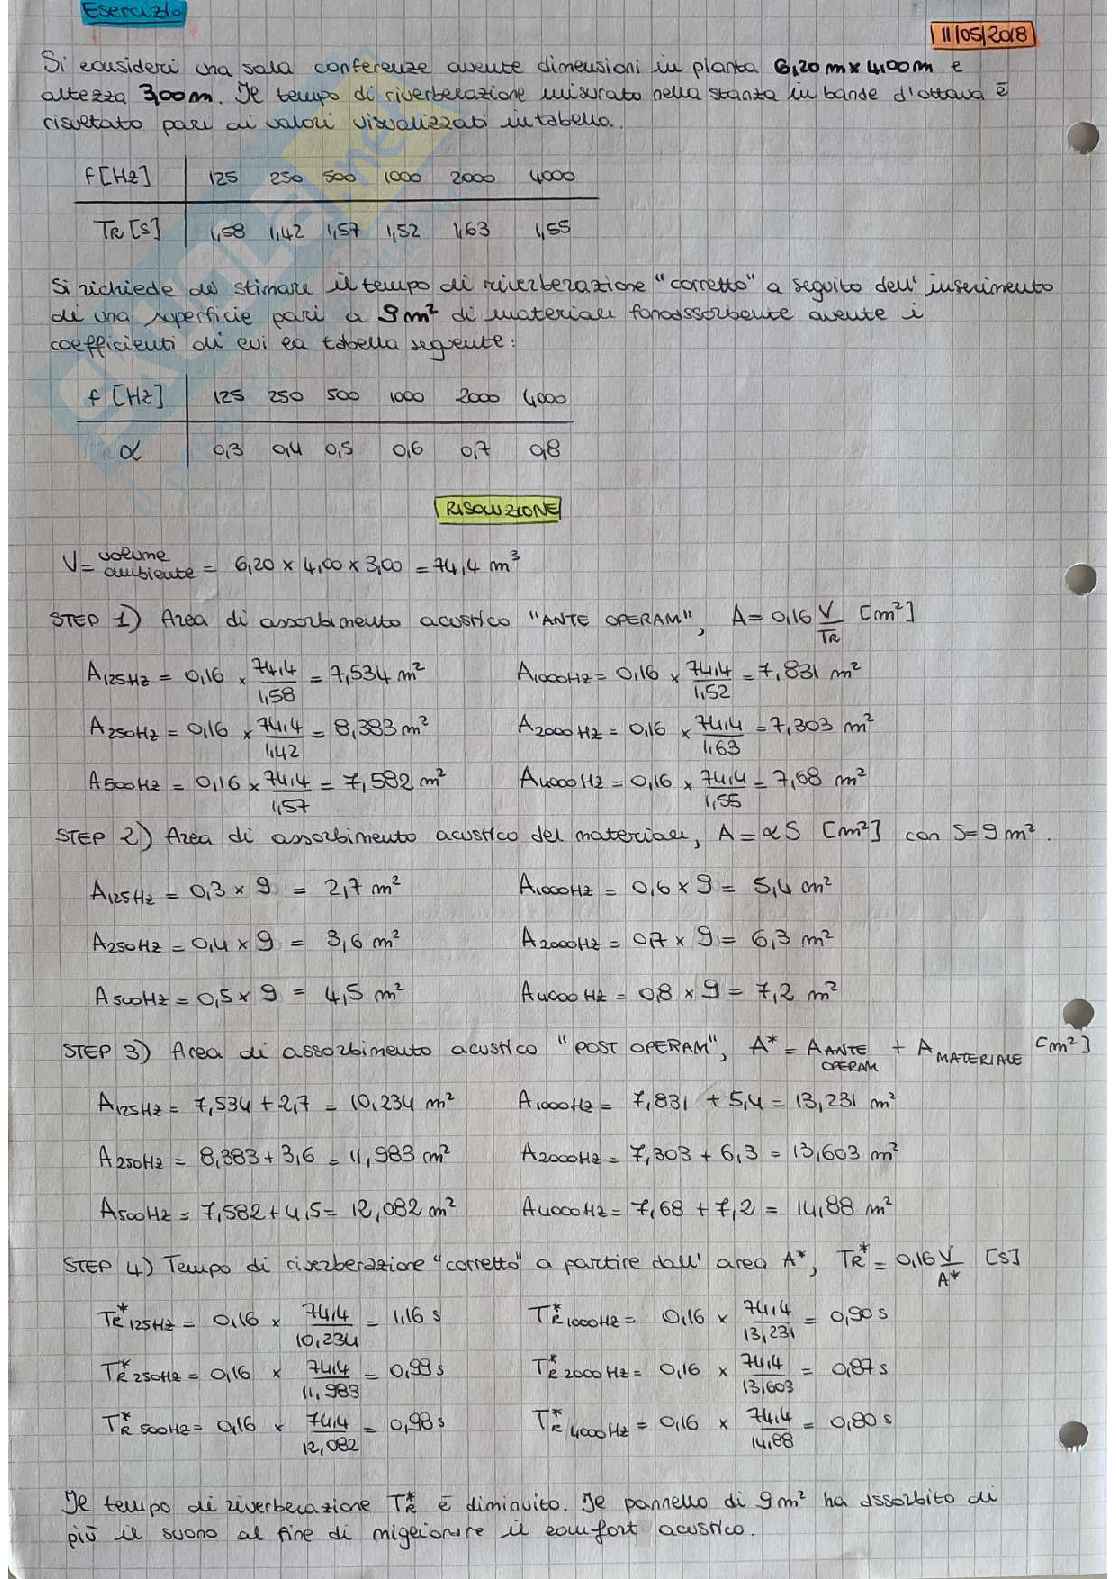 Esercizio
11/05/2018
Si consideri una sala conferenze avente dimensioni in pianta 6,20 m x 4,00 m e
altezza 3,00 m. Il tempo di riverberazione misurato nella stanza in bande d'ottava è
risultato pari ai valori visualizzati in tabella.
f [Hz] 125 250 500 1000 2000 4000
TR [s] 1,58 1,42 1,57 1,52 1,63 1,55
Si richiede di stimare il tempo di riverberazione "corretto" a seguito dell'inserimento
di una superficie pari a 9 m² di materiale fonoassorbente avente i
coefficienti di cui la tabella seguente:
f [Hz] 125 250 500 1000 2000 4000
α 0,3 0,4 0,5 0,6 0,7 0,8
RISOLUZIONE
V = volume ambiente = 6,20 x 4,00 x 3,00 = 74,4 m³
STEP 1) Area di assorbimento acustico "ANTE OPERAM", A = 0,16 V/TR [m²]
A125Hz = 0,16 x 74,4/1,58 = 7,534 m² A1000Hz = 0,16 x 74,4/1,52 = 7,831 m²
A250Hz = 0,16 x 74,4/1,42 = 8,383 m² A2000Hz = 0,16 x 74,4/1,63 = 7,303 m²
A500Hz = 0,16 x 74,4/1,57 = 7,582 m² A4000Hz = 0,16 x 74,4/1,55 = 7,68 m²
STEP 2) Area di assorbimento acustico del materiale, A = αS [m²] con S=9 m².
A125Hz = 0,3 x 9 = 2,7 m² A1000Hz = 0,6 x 9 = 5,4 m²
A250Hz = 0,4 x 9 = 3,6 m² A2000Hz = 0,7 x 9 = 6,3 m²
A500Hz = 0,5 x 9 = 4,5 m² A4000Hz = 0,8 x 9 = 7,2 m²
STEP 3) Area di assorbimento acustico "POST OPERAM", A* = A ANTE OPERAM + A MATERIALE [m²]
A125Hz = 7,534 + 2,7 = 10,234 m² A1000Hz = 7,831 + 5,4 = 13,231 m²
A250Hz = 8,383 + 3,6 = 11,983 m² A2000Hz = 7,303 + 6,3 = 13,603 m²
A500Hz = 7,582 + 4,5 = 12,082 m² A4000Hz = 7,68 + 7,2 = 14,88 m²
STEP 4) Tempo di riverberazione "corretto" a partire dall'area A*, TR* = 0,16 V/A* [s]
TR*125Hz = 0,16 x 74,4/10,234 = 1,16 s TR*1000Hz = 0,16 x 74,4/13,231 = 0,90 s
TR*250Hz = 0,16 x 74,4/11,983 = 0,99 s TR*2000Hz = 0,16 x 74,4/13,603 = 0,87 s
TR*500Hz = 0,16 x 74,4/12,082 = 0,98 s TR*4000Hz = 0,16 x 74,4/14,88 = 0,80 s
Il tempo di riverberazione TR* è diminuito. Il pannello di 9 m² ha assorbito di
più il suono al fine di migliorare il comfort acustico.